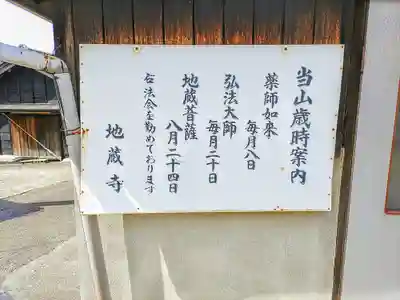 当山歳時案内
薬師如来
毎月八日
弘法大師
毎月二十日
地蔵菩薩
八月二十四日
右法会を勤めております
地蔵寺